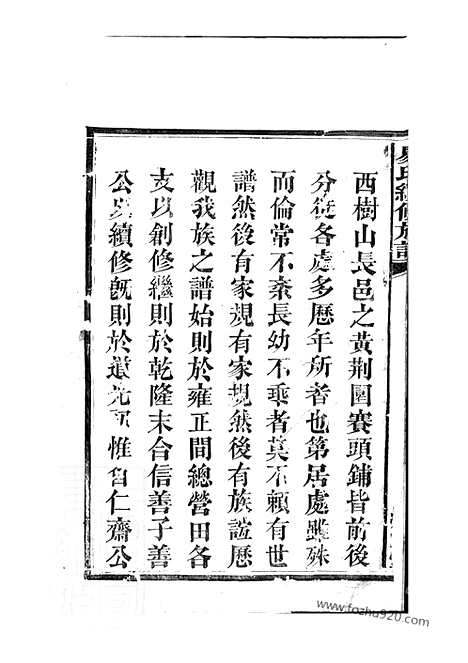 易氏續修族譜
西樹山長邑之黃荆園賽頭鋪皆前後
分徙各處多歷年所者也第居處雖殊
而倫常不紊長幼不乖者莫不賴有世
譜然後有家規有家規然後有族誼歷
觀我族之譜始則於雍正間總營田各
支以創修繼則於乾隆末合信善子善
公以續修旣則於道光 惟自仁齋公
www.fozhu920.com